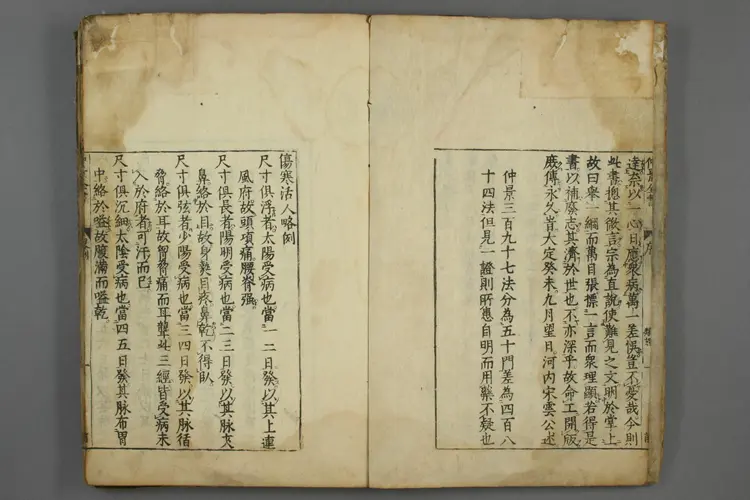 達奈以一心日應衆病萬一差悞豈不憂哉今則
此書摠其微言宗為直說使難見之文明於掌上
故曰舉一綱而萬目張標一言而衆理顯若得是
書以補廢志其濟於世也不亦深乎故命工開版
庶傳永久旹大定癸未九月望日河内宋雲公述
仲景三百九十七法分為五十門差為四百八
十四法但見一證則所應自明而用藥不疑也
傷寒活人略例
尺寸俱浮者太陽受病也當一二日發以其上連
風府故頭項痛腰脊强
尺寸俱長者陽明受病也當二三日發以其脉夾
鼻絡於目故身熱目疼鼻乾不得臥
尺寸俱弦者少陽受病也當三四日發以其脉循
脅絡於耳故胷脅痛而耳聾此三經皆受病未
入於府者可汗而已
尺寸俱沉細太陰受病也當四五日發其脉布胃
中絡於嗌故腹滿而嗌乾